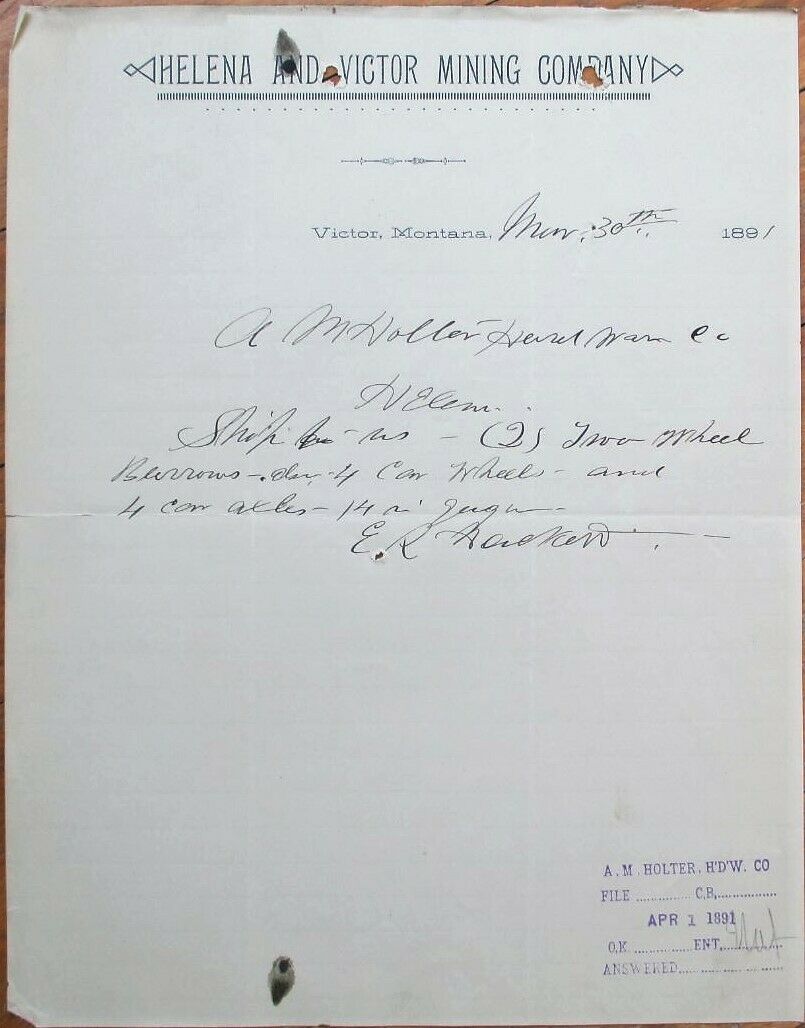 HELENA AND VICTOR MINING COMPANY
Victor, Montana, Mar. 30th 1891
A M Holter Hardware Co
Helena.
Ship to us - (2) Two Wheel
Barrows - 4 Car Wheels - and
4 car axles - 14 in
E. R Hackett
A. M. HOLTER. H'D'W. CO
FILE C.B.
APR 1 1891
O.K. ENT.
ANSWERED